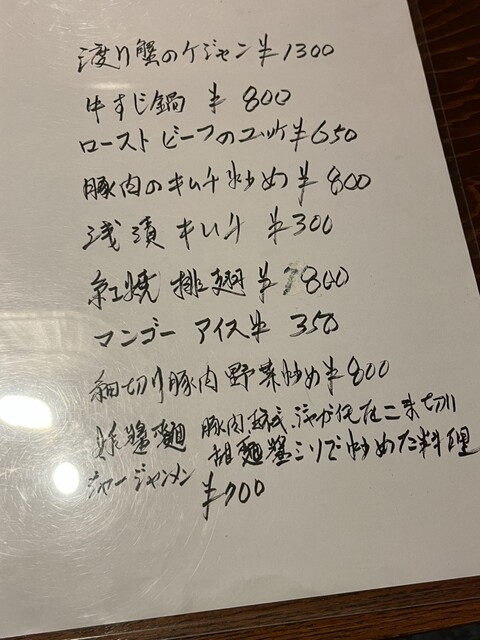 渡り蟹のケジャン¥1300
牛すじ鍋 ¥800
ローストビーフのユッケ¥650
豚肉のキムチ炒め ¥800
浅漬キムチ ¥300
紅焼排翅 ¥1800
マンゴーアイス¥ 350
細切り豚肉野菜炒め¥800
炸醬麺 豚肉
ジャージャンメン 甜麺醤 炒めた料理
¥700